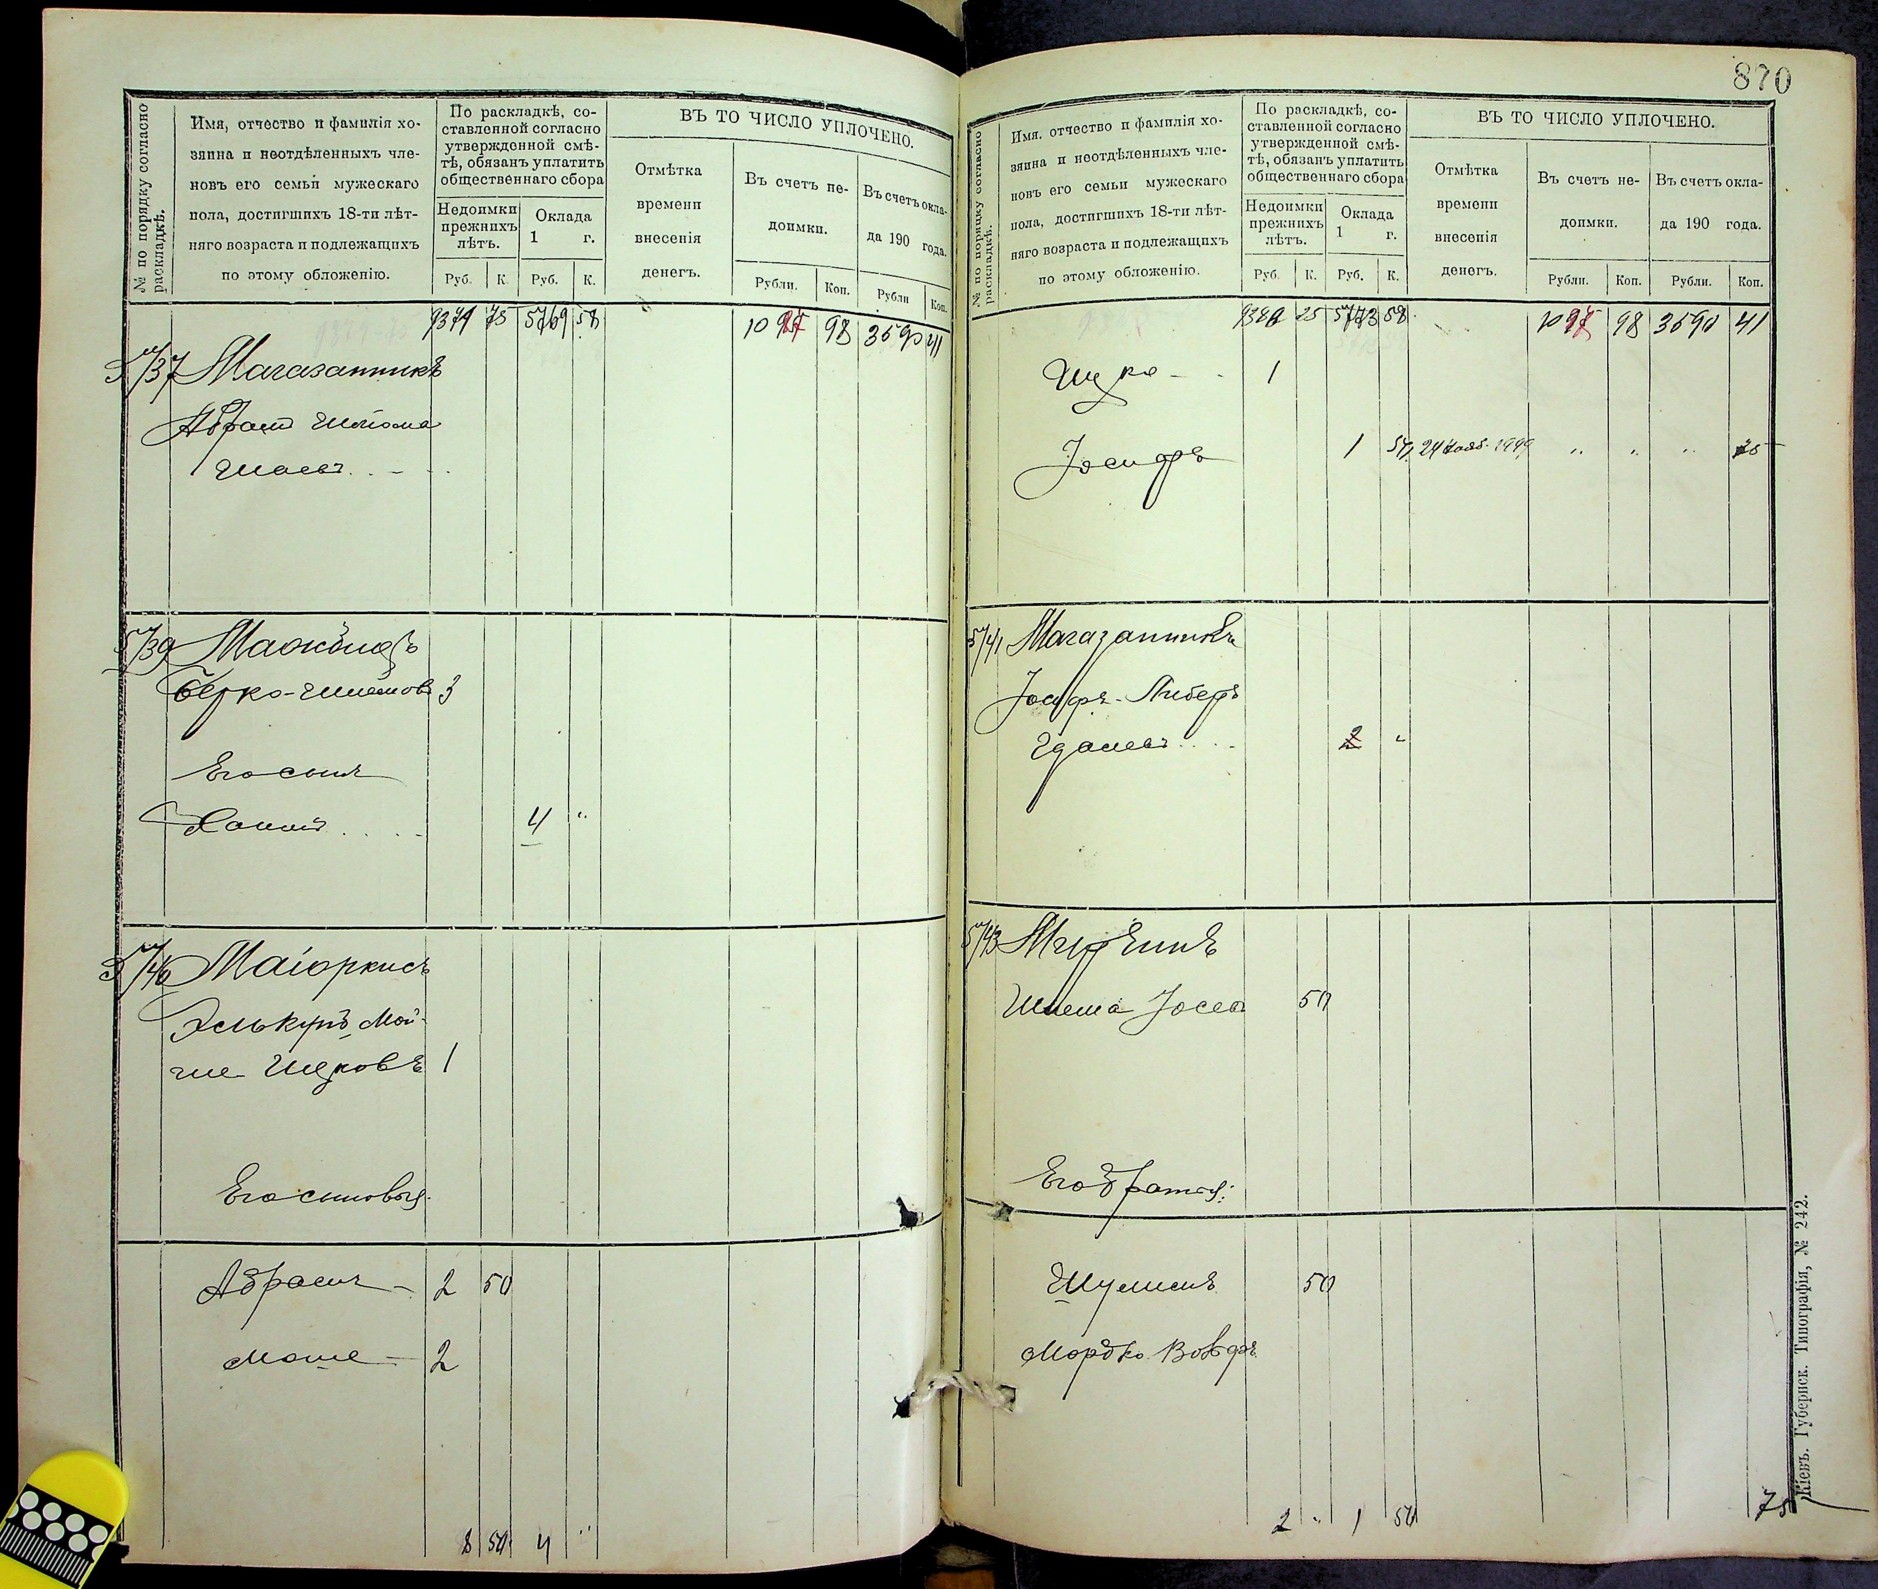 870
№ по порядку согласно раскладкѣ.
Имя, отчество и фамилія хо-
зяина и неотдѣленныхъ чле-
новъ его семьи мужескаго
пола, достигшихъ 18-ти лѣт-
няго возраста и подлежащихъ
по этому обложенію.
По раскладкѣ, со-
ставленной согласно
утвержденной смѣ-
тѣ, обязанъ уплатить
общественнаго сбора
Недоимки
прежнихъ
лѣтъ.
Оклада
1 г.
Руб. К. Руб. К.
ВЪ ТО ЧИСЛО УПЛОЧЕНО.
Отмѣтка
времени
внесенія
денегъ.
Въ счетъ не-
доимки.
Въ счетъ окла-
да 190 года.
Рубли. Коп. Рубли Коп.
75 5769 58 98 3590 41
5737 Магазанникъ
Абрамъ
5739
Берко- 3
Его сынъ
4 "
5740 Маіоркисъ
Мой-
ше Ицковъ 1
Его сыновья
Абрамъ 2 50
Моше 2
8 50 4 "
№ по порядку согласно раскладкѣ.
Имя, отчество и фамилія хо-
зяина и неотдѣленныхъ чле-
новъ его семьи мужескаго
пола, достигшихъ 18-ти лѣт-
няго возраста и подлежащихъ
по этому обложенію.
По раскладкѣ, со-
ставленной согласно
утвержденной смѣ-
тѣ, обязанъ уплатить
общественнаго сбора
Недоимки
прежнихъ
лѣтъ.
Оклада
1 г.
Руб. К. Руб. К.
ВЪ ТО ЧИСЛО УПЛОЧЕНО.
Отмѣтка
времени
внесенія
денегъ.
Въ счетъ не-
доимки.
Въ счетъ окла-
да 190 года.
Рубли. Коп. Рубли. Коп.
25 5773 58 98 3590 41
Ицко 1
Іосифъ 1 50 " " "
5741 Магазанникъ
Іосифъ-Либеръ
2 "
5743
Іосев 50
Его братья:
Шулимъ 50
Мордко
2 " 1 50 75
Кіевъ. Губернск. Типографія, № 242.